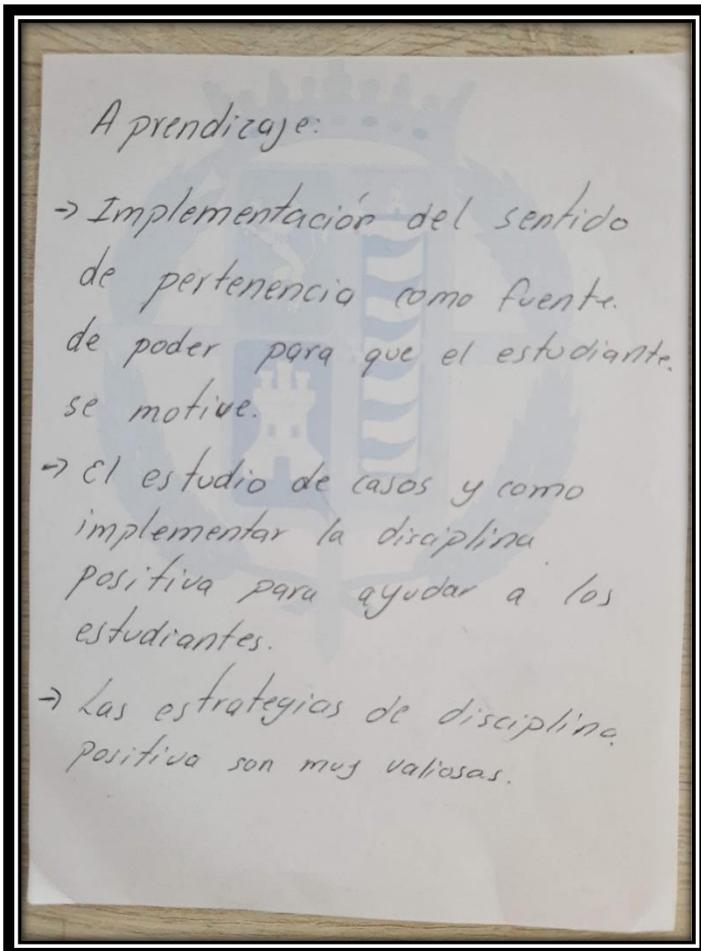 Aprendizaje:
→ Implementación del sentido
de pertenencia como fuente.
de poder para que el estudiante.
se motive.
→ El estudio de casos y como
implementar la disciplina
positiva para ayudar a los
estudiantes.
→ Las estrategias de disciplina
positiva son muy valiosas.